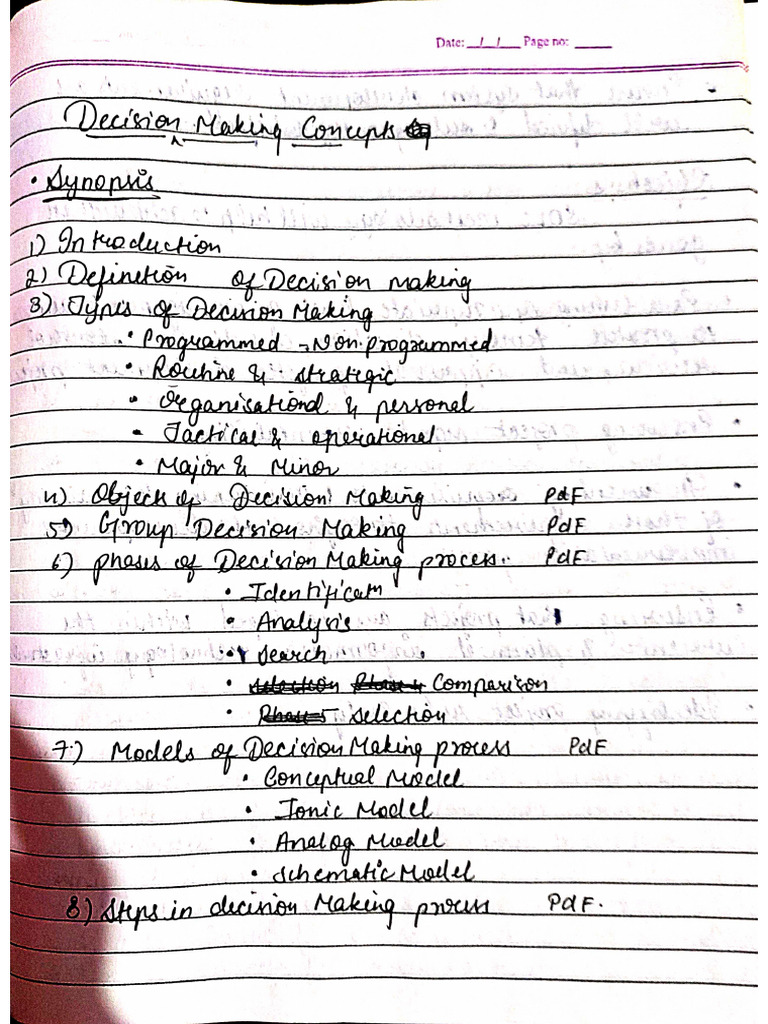 Date: _/_/_ Page no: ____
Decision Making Concepts
• Synopsis
1) Introduction
2) Definetion of Decision making
3) Types of Decision Making
• Programmed - Non-programmed
• Routine & strategic
• Organisationd & personal
• Tactical & operational
• Major & Minor
4) Objects of Decision Making PdF
5) Group Decision Making PdF
6) phases of Decision Making process. PdF
• Identificatn
• Analysis
• Search
• selection Phase 4 Comparison
• Phase 5 selection
7) Models of Decision Making process PdF
• Conceptual Model
• Ionic Model
• Analog Model
• schematic Model
8) Steps in decision Making process PdF.